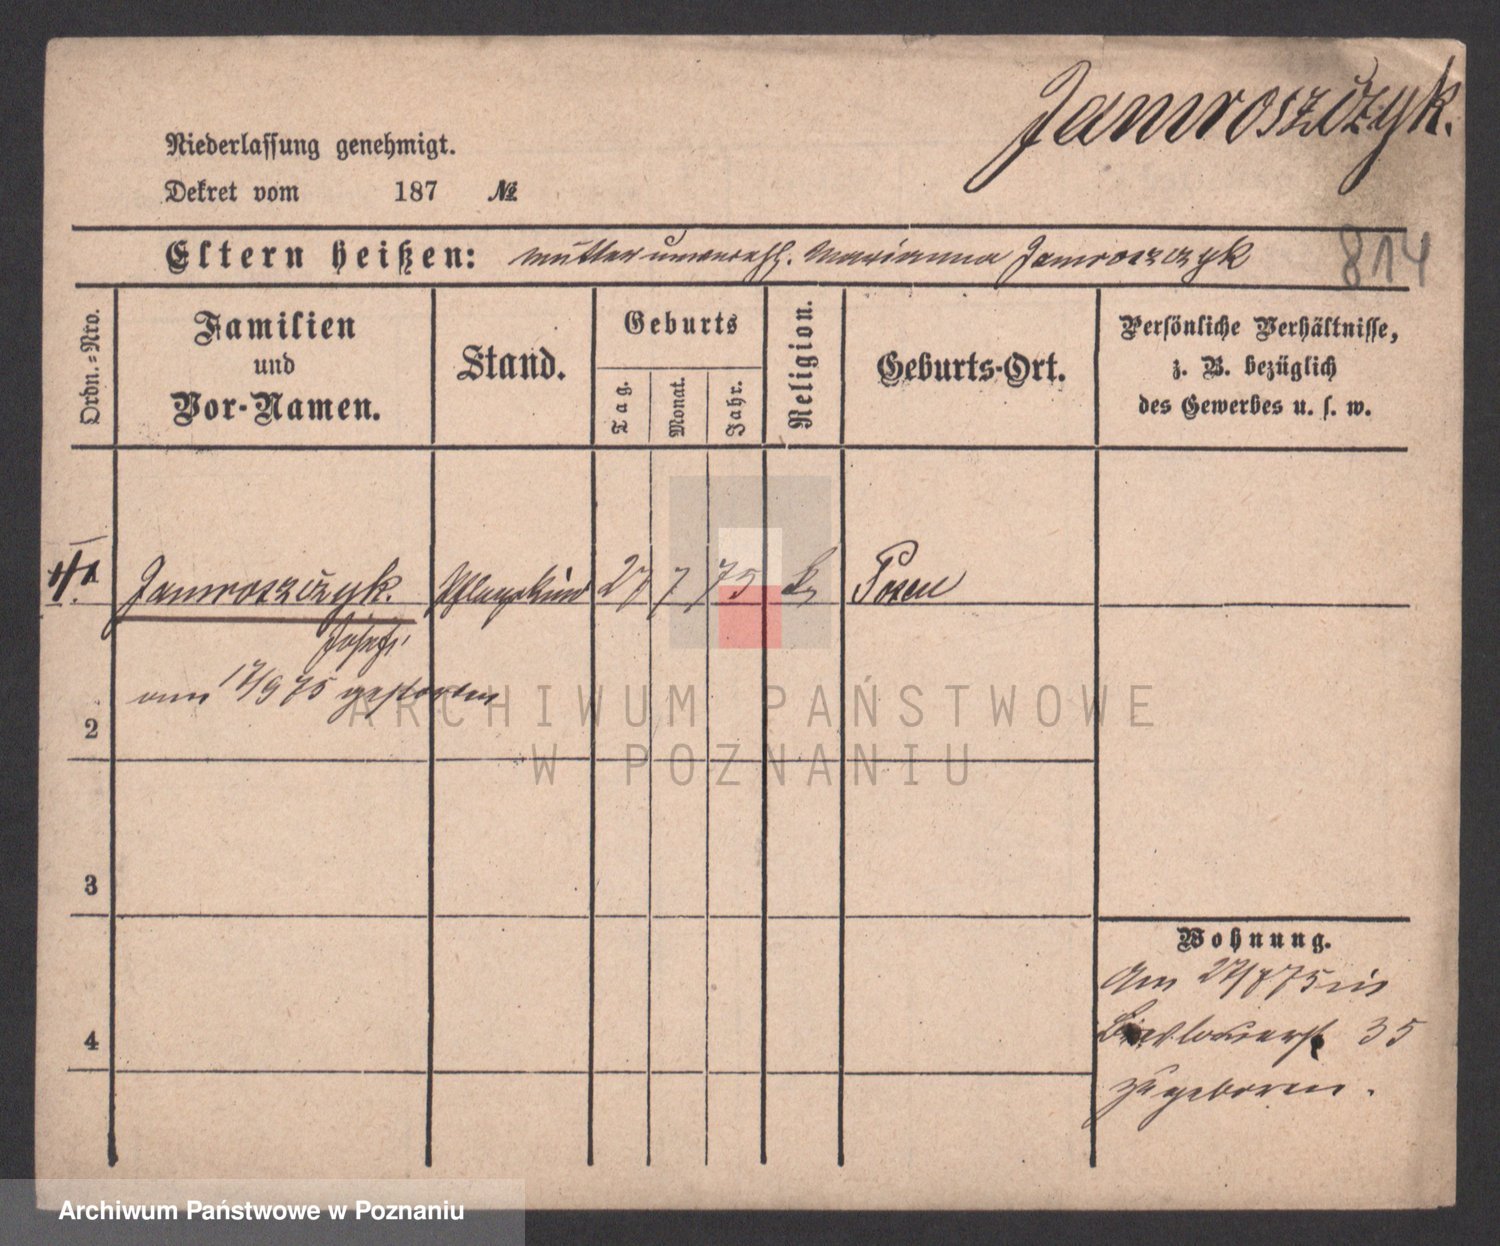 Jamroszczyk.
Niederlassung genehmigt.
Dekret vom 187 №
Eltern heißen: Mutter unvereh. Marianna Jamroszczyk
814
Ordn.=Nro.
Familien
und
Vor-Namen.
Stand.
Geburts
Tag.
Monat.
Jahr.
Religion.
Geburts-Ort.
Persönliche Verhältnisse,
z. B. bezüglich
des Gewerbes u. s. w.
1 Jamroszczyk. Pflegekind 27 7 75 k Posen
Josef
am 17/9 75 gestorben
2
3
4
Wohnung.
Am 27/7 75 in
35
zugeboren.
ARCHIWUM PAŃSTWOWE
W POZNANIU
Archiwum Państwowe w Poznaniu